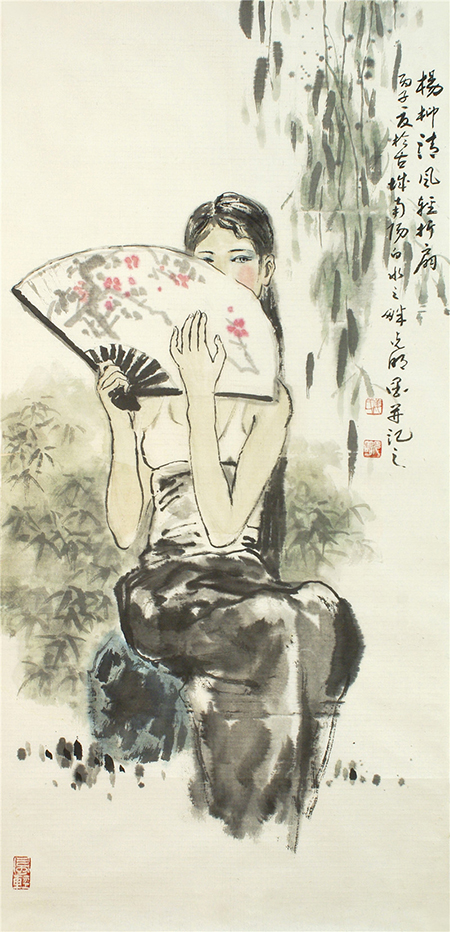 楊柳清風輕折扇
丙子夏於古城南陽白水之畔克明墨并記之